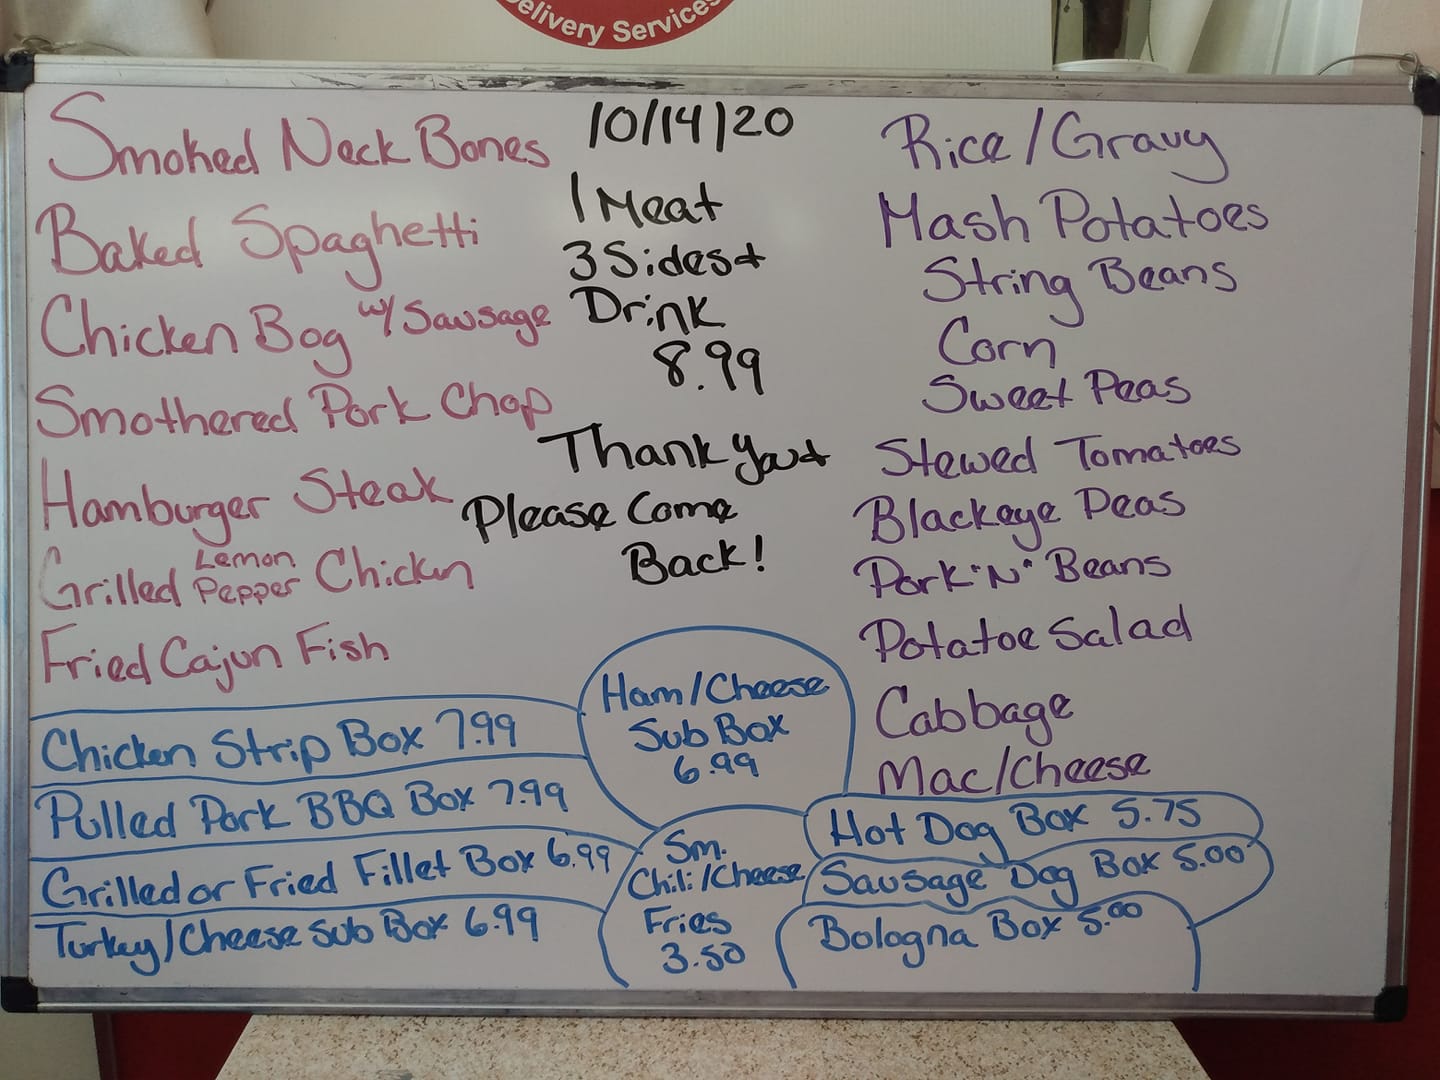 Delivery Services
Smoked Neck Bones
Baked Spaghetti
Chicken Bog w/ Sausage
Smothered Pork Chop
Hamburger Steak
Grilled Lemon Pepper Chicken
Fried Cajun Fish
10/14/20
1 Meat
3 Sides +
Drink
8.99
Thank You +
Please Come
Back!
Rice/Gravy
Mash Potatoes
String Beans
Corn
Sweet Peas
Stewed Tomatoes
Blackeye Peas
Pork "N" Beans
Potatoe Salad
Cabbage
Mac/Cheese
Chicken Strip Box 7.99
Pulled Pork BBQ Box 7.99
Grilled or Fried Fillet Box 6.99
Turkey/Cheese Sub Box 6.99
Ham/Cheese
Sub Box
6.99
Sm.
Chili/Cheese
Fries
3.50
Hot Dog Box 5.75
Sausage Dog Box 5.00
Bologna Box 5.00